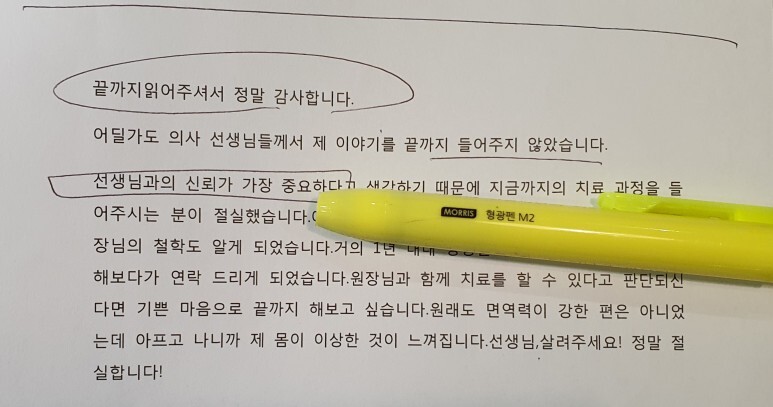 끝까지읽어주셔서 정말 감사합니다.
어딜가도 의사 선생님들께서 제 이야기를 끝까지 들어주지 않았습니다.
선생님과의 신뢰가 가장 중요하다고 생각하기 때문에 지금까지의 치료 과정을 들
어주시는 분이 절실했습니다.
장님의 철학도 알게 되었습니다.거의 1년 내내
해보다가 연락 드리게 되었습니다.원장님과 함께 치료를 할 수 있다고 판단되신
다면 기쁜 마음으로 끝까지 해보고 싶습니다.원래도 면역력이 강한 편은 아니었
는데 아프고 나니까 제 몸이 이상한 것이 느껴집니다.선생님,살려주세요! 정말 절
실합니다!
MORRIS 형광펜 M2